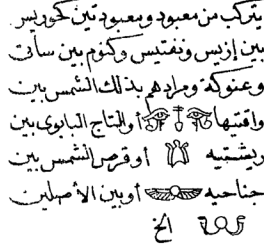 يتركب من معبود ومعبودتين كحوريس
بين إزيس ونفتيس وكنوم بين ساتى
وعنوكة ومرادهم بذلك الشمس بين
واقيتيها أو التاج البابوى بين
ريشتيه أو قرص الشمس بين
جناحيه أو بين الأصلين
الخ